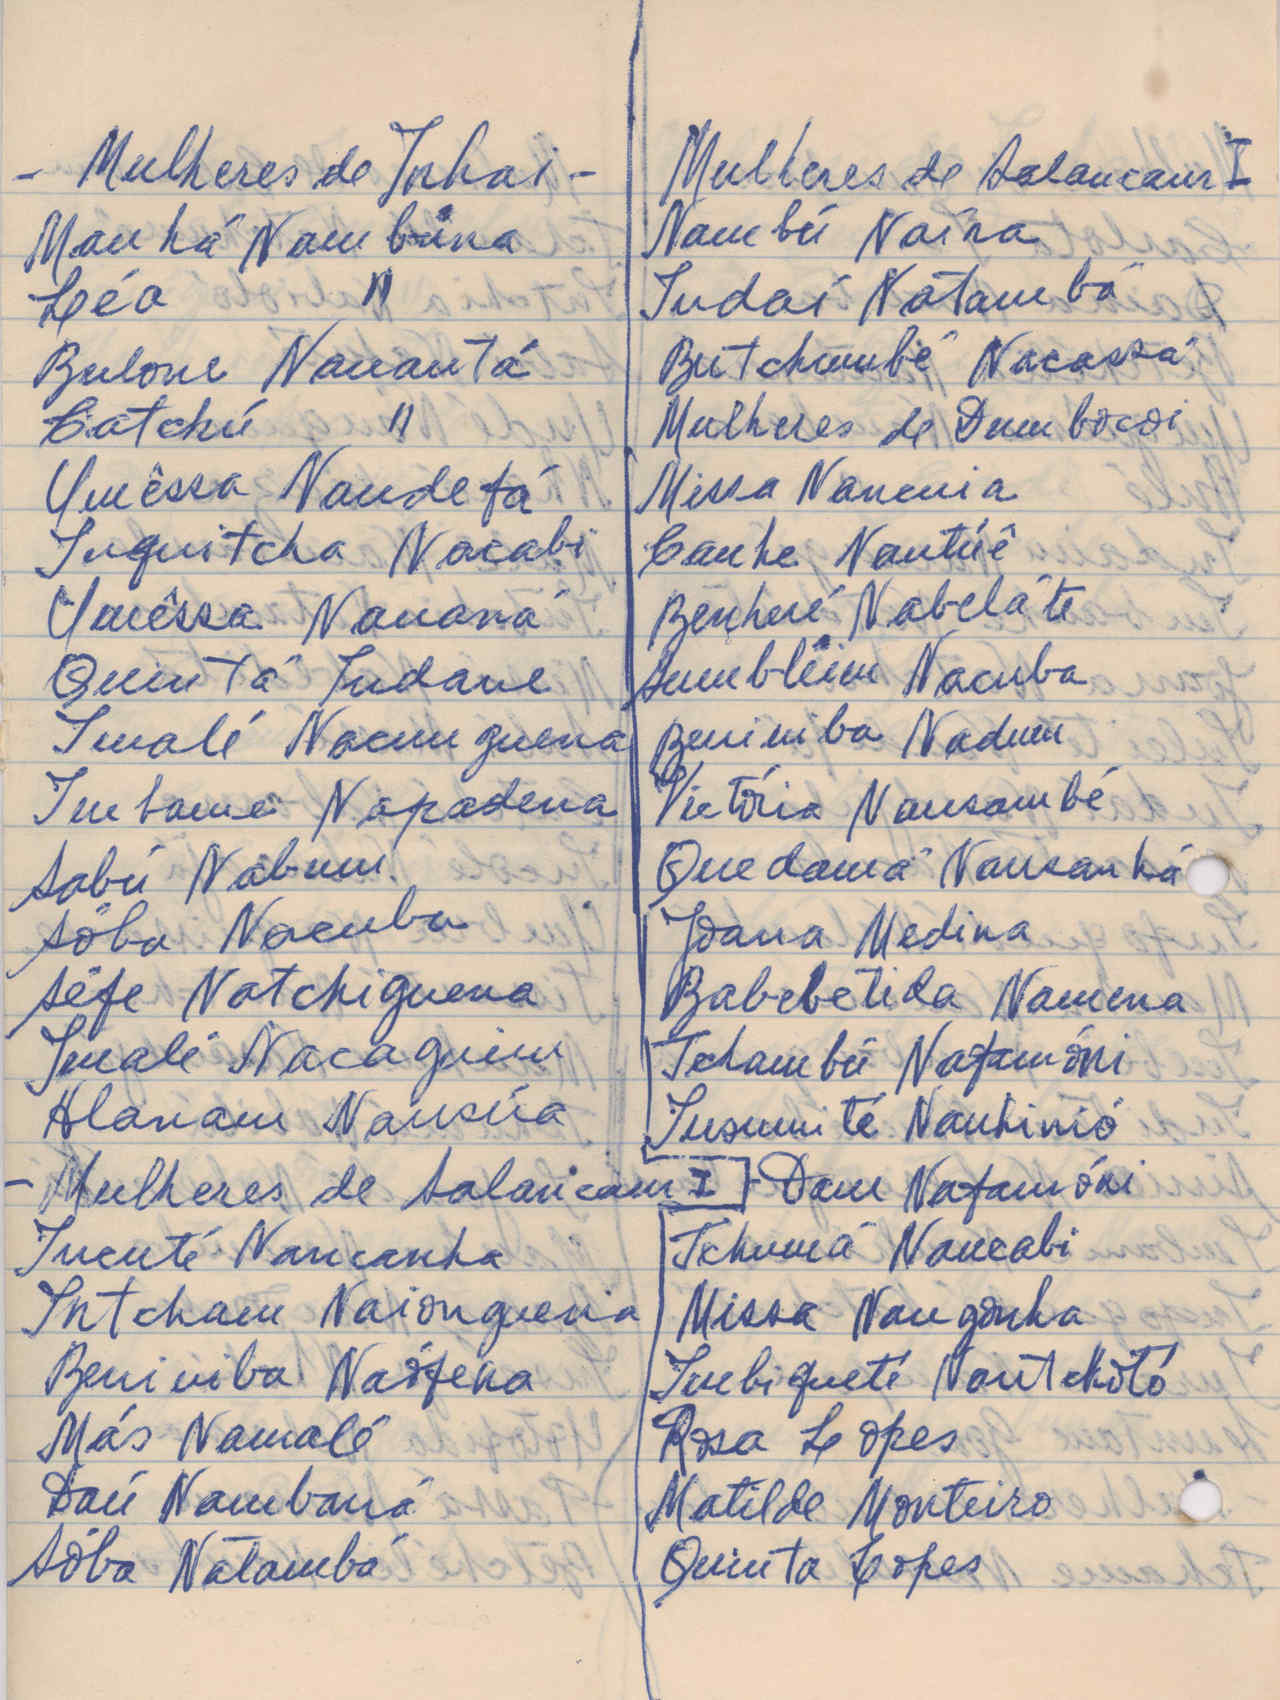 - Mulheres de Inhai -
Manhá Nambána
Léa "
Bulone Nanantá
Catchú "
Umêssa Nandefá
Inquitcha Nacabi
Umêssa Nananá
Quintá Indane
Imalé Nacunguena
Imbame Napadena
Sabú Nabum
Sôba Nacuba
Sêfe Natchiguena
Imalé Nacaguim
Alanam Nansúa
- Mulheres de Salancam I
Incuté Nancanha
Intcham Naionguena
Beniniba Naófena
Más Namalé
Daú Nambaná
Sôba Natambá
Mulheres de Salancaur I
Nambú Naína
Indai Natambá
Butchumbé Nacassá
Mulheres de Dumbocoi
Missa Nancnia
Canhe Nantúê
Benhené Nabeláte
Sumbléim Nacuba
Beniniba Nadum
Victória Nansambé
Quedamá Nansanhá
Joana Medina
Babebetida Namena
Tchambú Nafamóni
Insumité Nanhinió
- Dam Nafamóni
Tchumá Nancabi
Missa Nangonha
Imbiqueté Nantchótó
Rosa Lopes
Matilde Monteiro
Quinta Lopes